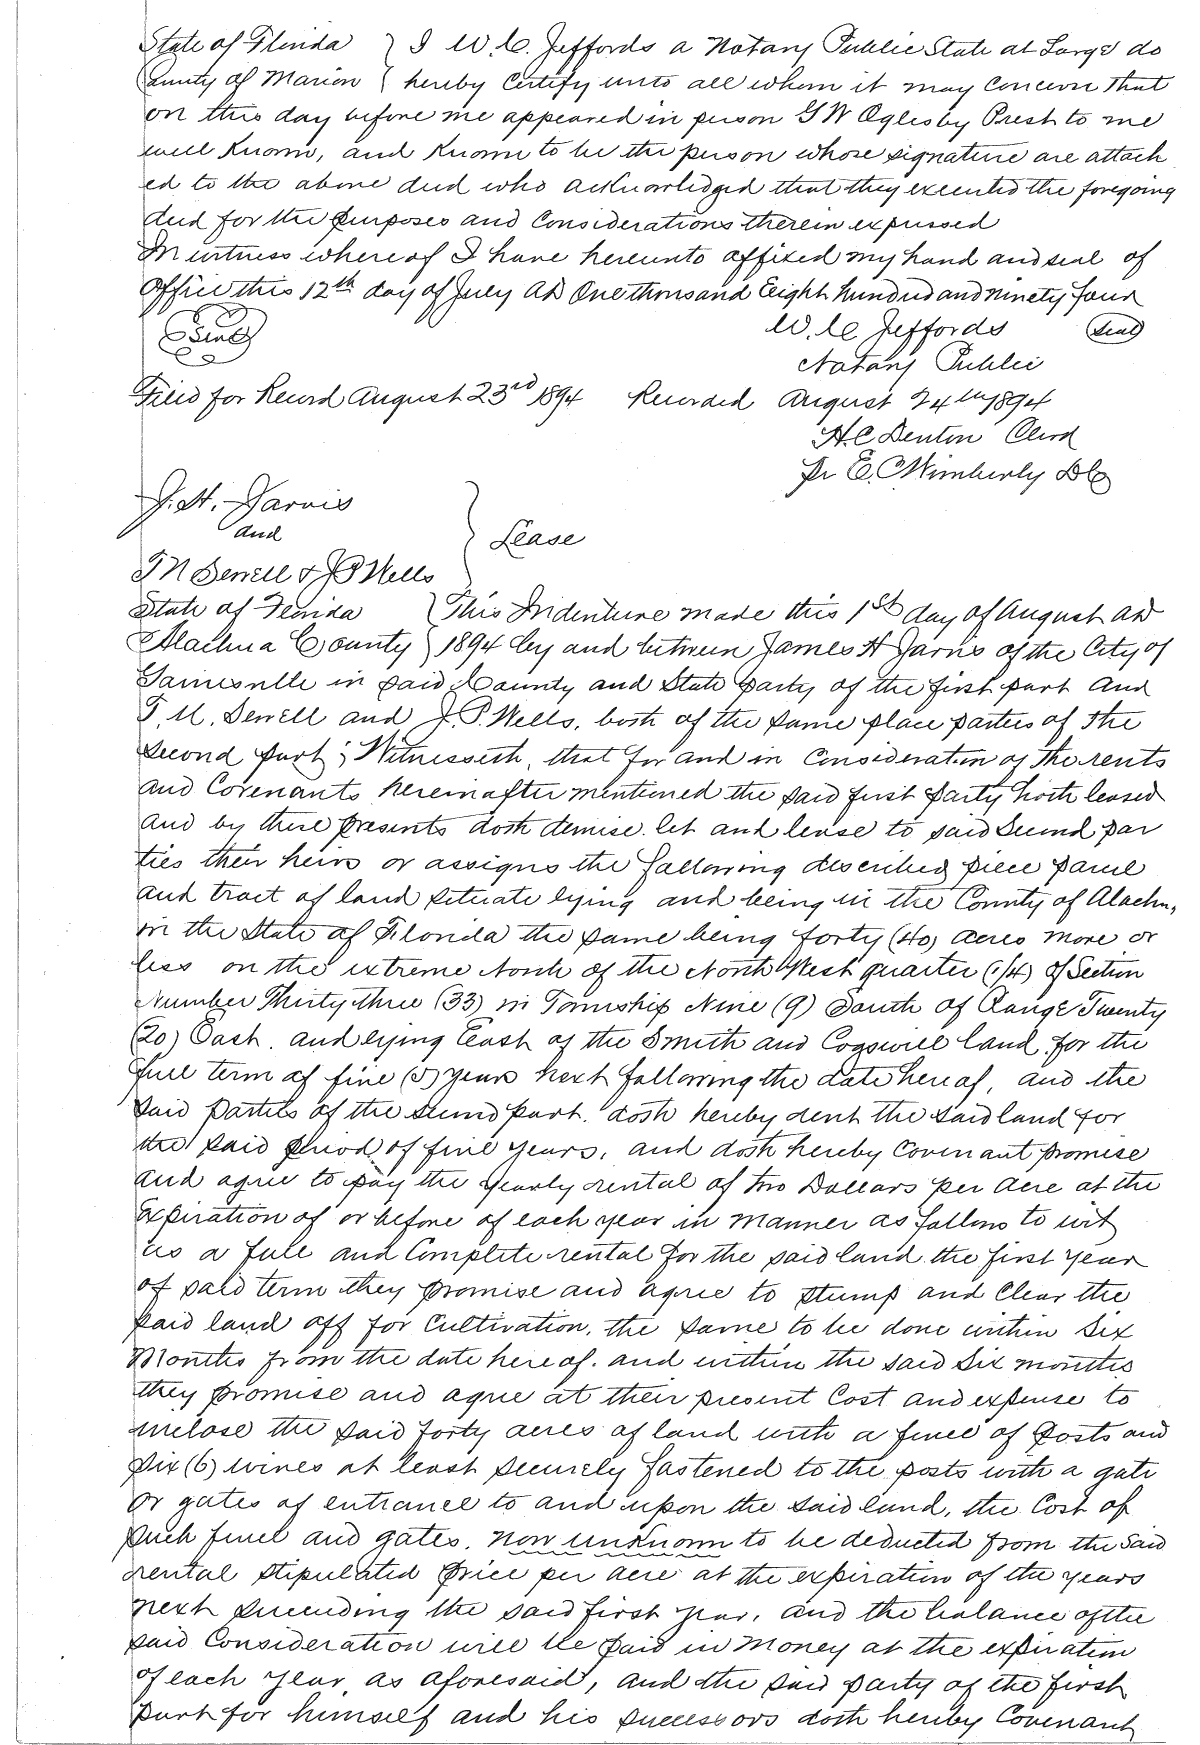 State of Florida } I W. C. Jeffords a Notary Public State at Large do
County of Marion } hereby Certify unto all whom it may Concern that
on this day before me appeared in person G W Oglesby Prest to me
well Known, and Known to be the person whose signature are attach
ed to the above deed who acknowledged that they executed the foregoing
deed for the purposes and Considerations therein expressed
In witness whereof I have hereunto affixed my hand and seal of
Office this 12th day of July AD One thousand Eight hundred and ninety four
(Seal) W. C Jeffords (Seal)
Notary Public
Filed for Record August 23rd 1894 Recorded August 24th 1894
H. C Denton Clerk
Pr E. C Wimberly DC
J. H. Jarvis
and } Lease
T M Sewell & J P Wells
State of Florida } This Indenture made this 1st day of August AD
Alachua County } 1894 by and between James H Jarvis of the City of
Gainesville in said County and State party of the first part and
T. M. Sewell and J. P. Wells, both of the same place parties of the
Second part; Witnesseth, that for and in Consideration of the rents
and Covenants hereinafter mentioned the said first party hath leased
and by these presents doth demise let and lease to said Second par
ties their heirs or assigns the following described piece parcel
and tract of land situate lying and being in the County of Alachu,
in the State of Florida the same being forty (40) acres more or
less on the extreme North of the North West quarter (1/4) of Section
Number Thirty three (33) in Township Nine (9) South of Range Twenty
(20) East. and lying East of the Smith and Cogswell land, for the
full term of five (5) years next following the date hereof, and the
said parties of the second part. doth hereby rent the said land for
the said period of five years, and doth hereby Covenant promise
and agree to pay the yearly rental of two Dollars per acre at the
expiration of or before of each year in manner as follows to wit
as a full and Complete rental for the said land the first year
of said term they promise and agree to stump and Clear the
said land off for Cultivation, the same to be done within Six
Months from the date hereof. and within the said Six months
they promise and agree at their present Cost and expense to
inclose the said forty acres of land with a fence of posts and
six (6) wires at least securely fastened to the posts with a gate
or gates of entrance to and upon the said land, the Cost of
such fence and gates. now unknown to be deducted from the said
rental stipulated price per acre at the expiration of the years
next succeeding the said first year, and the balance of the
said Consideration will be paid in Money at the expiration
of each year as aforesaid, and the said party of the first
part for himself and his successors doth hereby Covenant